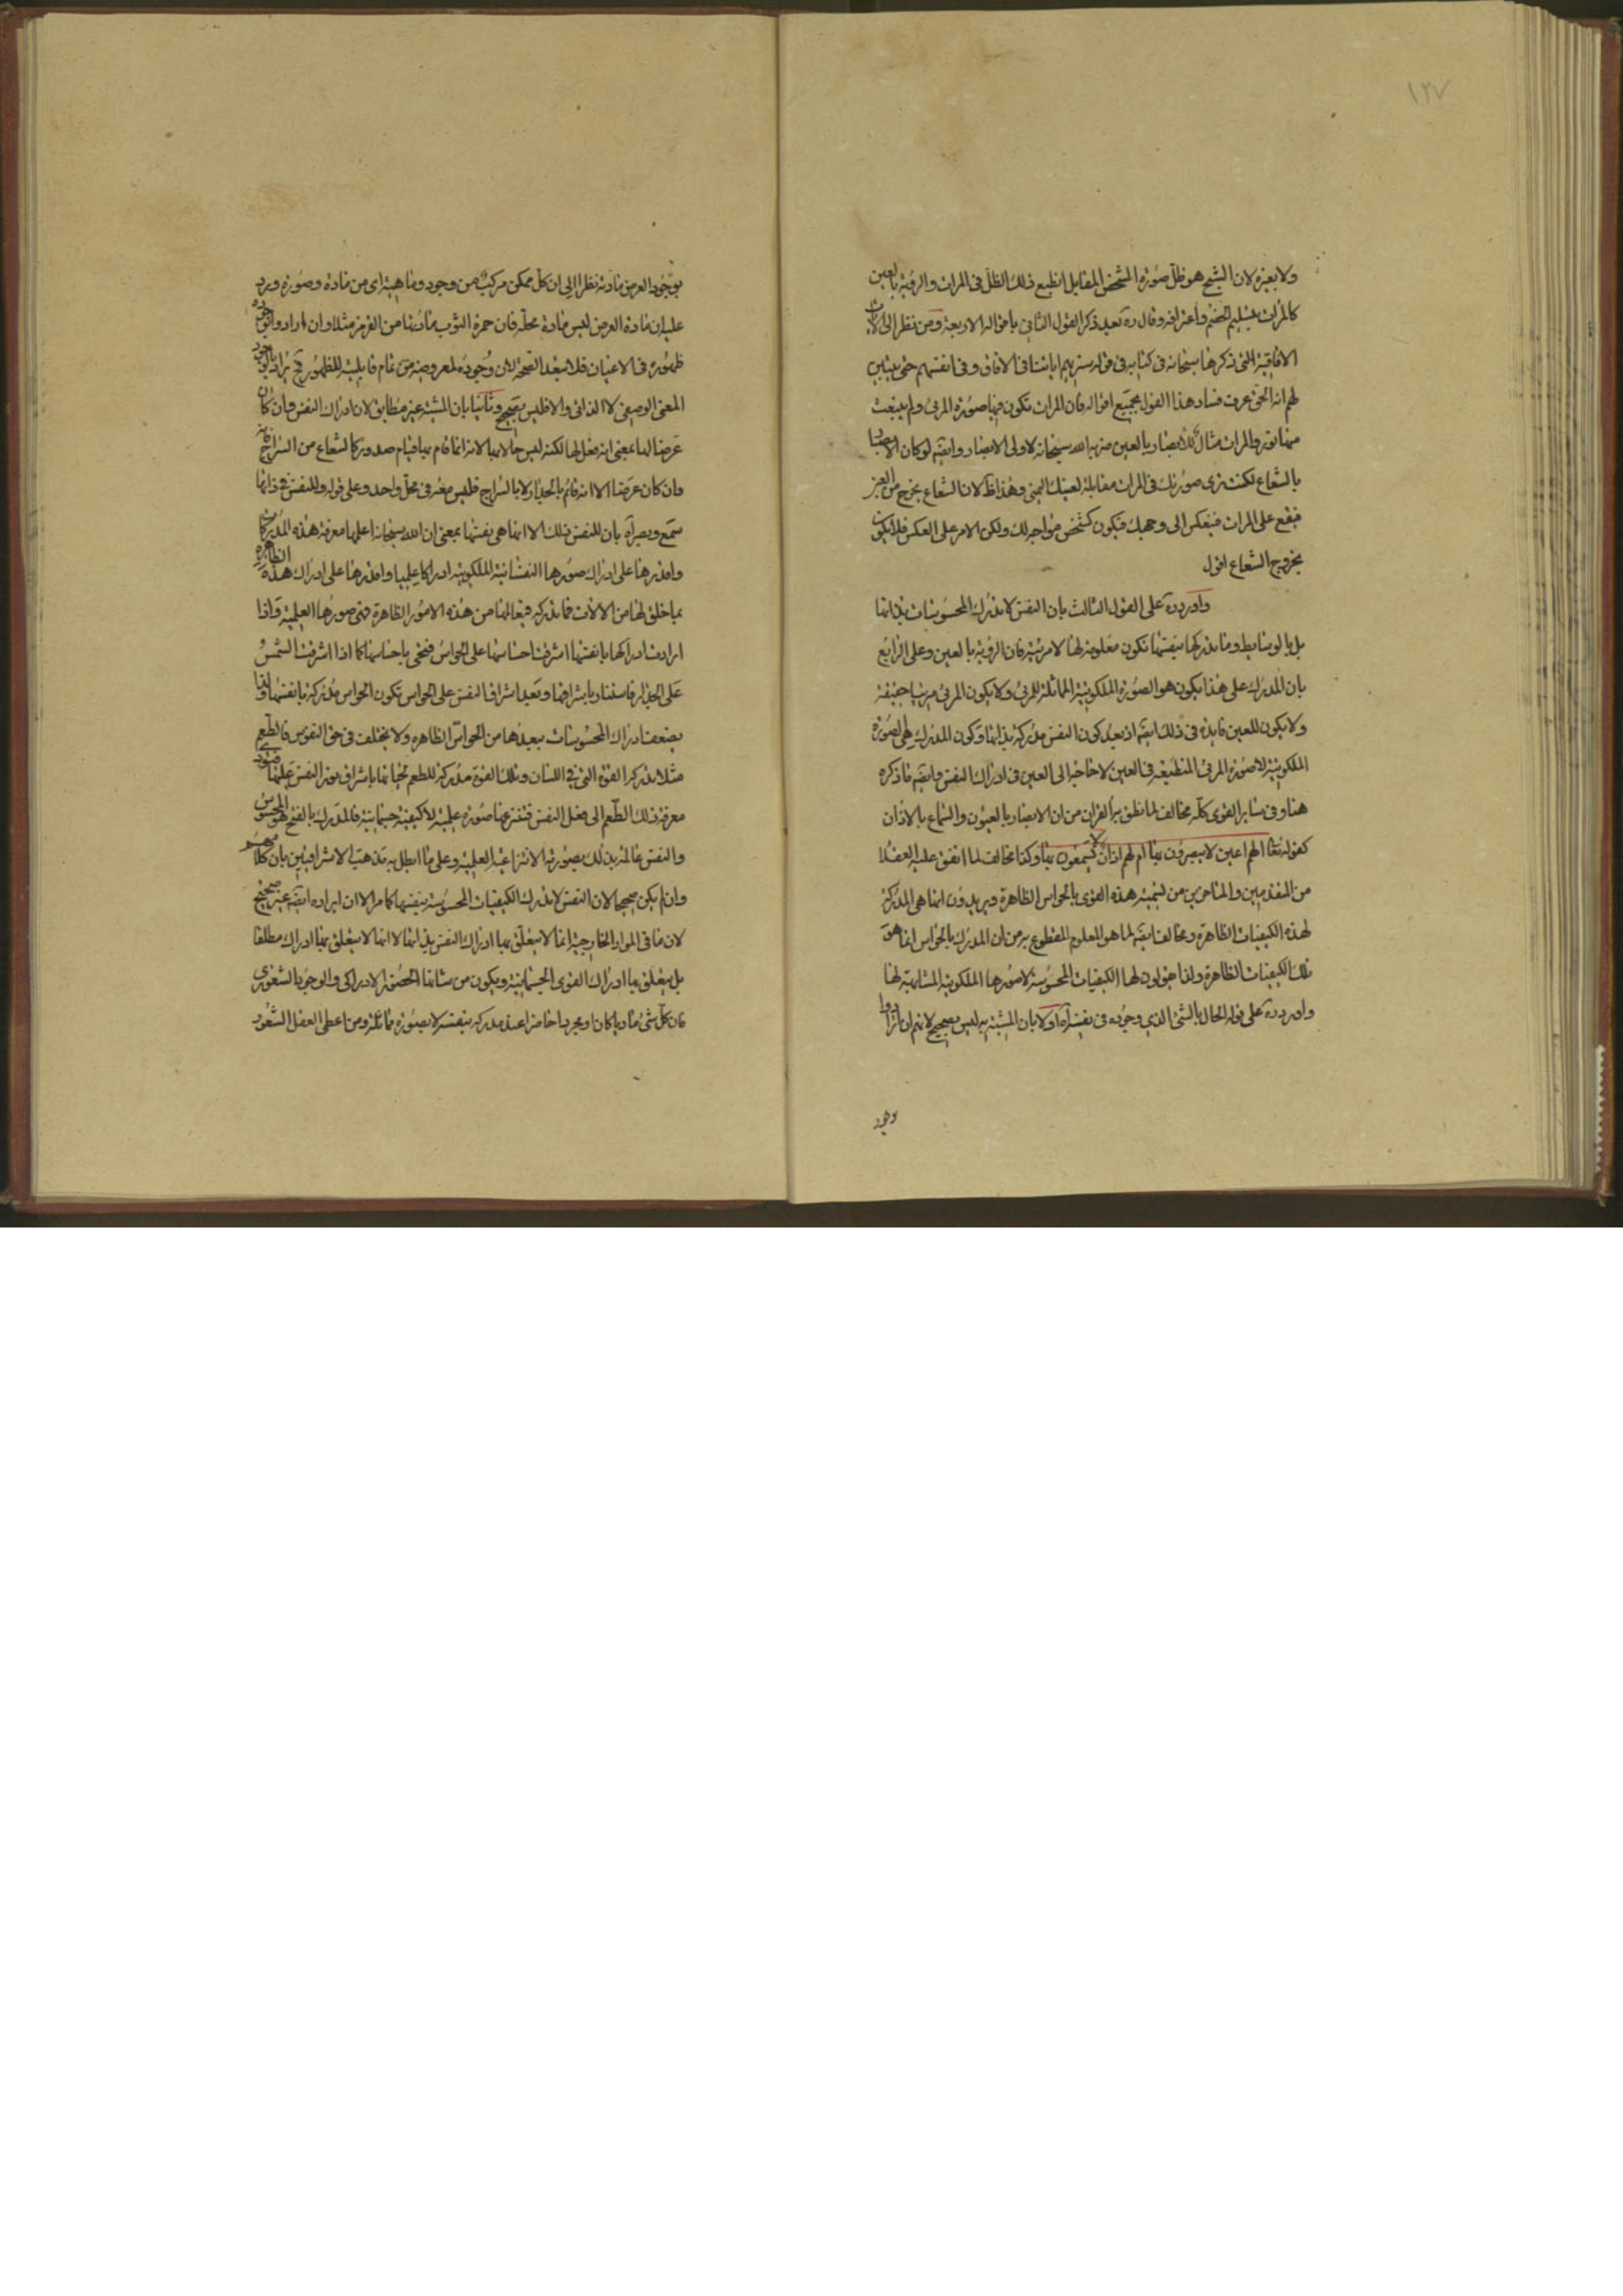 ١٣٧
ولا بغيره لان الشبح هو ظل صورة الشخص المقابل انطبع ذلك الظل فى المرات والرؤية بالعين
كالمرات بتسليم الخصم واعترافه وقال ره بعيد ذكر القول الثانى باقواله الاربعة ومن نظر الى الايات
الافاقية التى ذكرها سبحانه فى كتابه فى قوله سنريهم اياتنا فى الافاق وفى انفسهم حتى يتبين
لهم انه الحق عرف فساد هذا القول بجميع اقواله فان المرات تكون فيها صورة المرئى ولم ينبعث
منها نور والمرات مثال للابصار بالعين ضربه الله سبحانه لاولى الابصار وايضا لو كان الابصار
بالشعاع لكنت ترى صورتك فى المرات مقابلة لعينك اليمنى وهذا ظ لان الشعاع يخرج من العين
فيقع على المرات فينعكس الى وجهك فيكون كشخص مواجه لك ولكن الامر على العكس فلا يكون
بخروج الشعاع اقول
واورد ره على القول الثالث بان النفس لا تدرك المحسوسات بذاتها
بل بالوسايط وما تدركها بنفسها تكون معلومة لها لا مرئية فان الرؤية بالعين وعلى الرابع
بان المدرك على هذا يكون هو الصورة الملكوتية المماثلة للمرئى ولا يكون المرئى مرئيا حقيقة
ولا يكون للعين فايدة فى ذلك ايضا اذ بعد كون النفس مدركة بذاتها وكون المدرك هى الصورة
الملكوتية لا صورة المرئى المنطبعة فى العين لا حاجة الى العين فى ادراك النفس وايضا ما ذكره
هنا وفى ساير القوى كله مخالف لما نطق به القران من ان الابصار بالعيون والسماع بالاذان
كقوله تعا الهم اعين لا يبصرون بها ام لهم اذان لا يسمعون بها وكذا مخالف لما اتفق عليه العقلا
من المتقدمين والمتاخرين من تسمية هذه القوى بالحواس الظاهرة ويريدون انها هى المدركة
لهذه الكيفيات الظاهرة ومخالف ايضا لما هو المعلوم المقطوع به من ان المدرك بالحواس انما هو
تلك الكيفيات الظاهرة ولذا يقولون لها الكيفيات المحسوسة لا صورها الملكوتية المشابهة لها
واورد ره على قوله الحال بالشئ الذى وجوده فى نفسه اه اولا بان المشبه به ليس بصحيح لانهم ان ارادوا
وجود
بوجود العرض مادته نظرا الى ان كل ممكن مركب من وجود وماهية اى من مادة وصورة ويرد
عليه ان مادة العرض ليس مادة محله فان حمرة الثوب مادتها من القرمز مثلا وان ارادوا بوجوده
ظهوره فى الاعيان فلا تبعد الصحة لان وجوده لمعروضه من تمام قابليته للظهور ح يراد بالوجود
المعنى الوصفى لا الذاتى والا فليس بصحيح وثانيا بان المشبه غير مطابق لان ادراك النفس وان كان
عرضا لها بمعنى انه فعل لها لكنه ليس حالا بها لانه انما قام بها قيام صدور كالشعاع من السراج فانه
وان كان عرضا الا انه قائم بالجدار لا بالسراج فليس معه فى محل واحد وعلى قوله وللنفس فى ذاتها
سمع وبصر اه بان للنفس ذلك الا انها هى نفسها بمعنى ان الله سبحانه اعلمها معرفة هذه المدركات
واقدرها على ادراك صورها النفسانية الملكوتية ادراكا علميا واقدرها على ادراك هذه الظاهرة
بما خلق لها من الالات فما تدركه فى عالمها من هذه الامور الظاهرة فهى صورها العلمية واذا
ارادت ادراكها بانفسها اشرقت احساسها على الحواس فتحيى باحساسها كما اذا اشرقت الشمس
على الجدار فاستنار باشراقها وبعد اشراق النفس على الحواس تكون الحواس مدركة بانفسها ولذا
يضعف ادراك المحسوسات ببعدها من الحواس الظاهره ولا يختلف فى حق النفوس فالطعم
مثلا تدركه القوة التى فى اللسان وتلك القوة مدركة للطعم بحياتها باشراق نور النفس عليها فتؤدى
معرفة ذلك الطعم الى فعل النفس فتنتزع منها صورة علمية لا كيفية جسمانية فالمدرك بالفتح هو المحسوس
والنفس عالمة بذلك بصورته الانتزاعية العلمية وعلى ما ابطل به مذهب الاشراقيين بان كلامهم
وان لم يكن صحيحا لان النفس لا تدرك الكيفيات المحسوسة بنفسها كما مر الا ان ايراده ايضا غير صحيح
لان ما فى المواد الخارجية انما لا يتعلق بها ادراك النفس بذاتها لا انها لا يتعلق بها ادراك مطلقا
بل يتعلق بها ادراك القوى الجسمانية ويكون من شانها الحضور الادراكى والوجود الشعورى
فان كل شئ ماديا كان او مجردا حاضرا عند مدركه بنفسه لا بصورة مماثلة ومن اعطى العقل الشعور